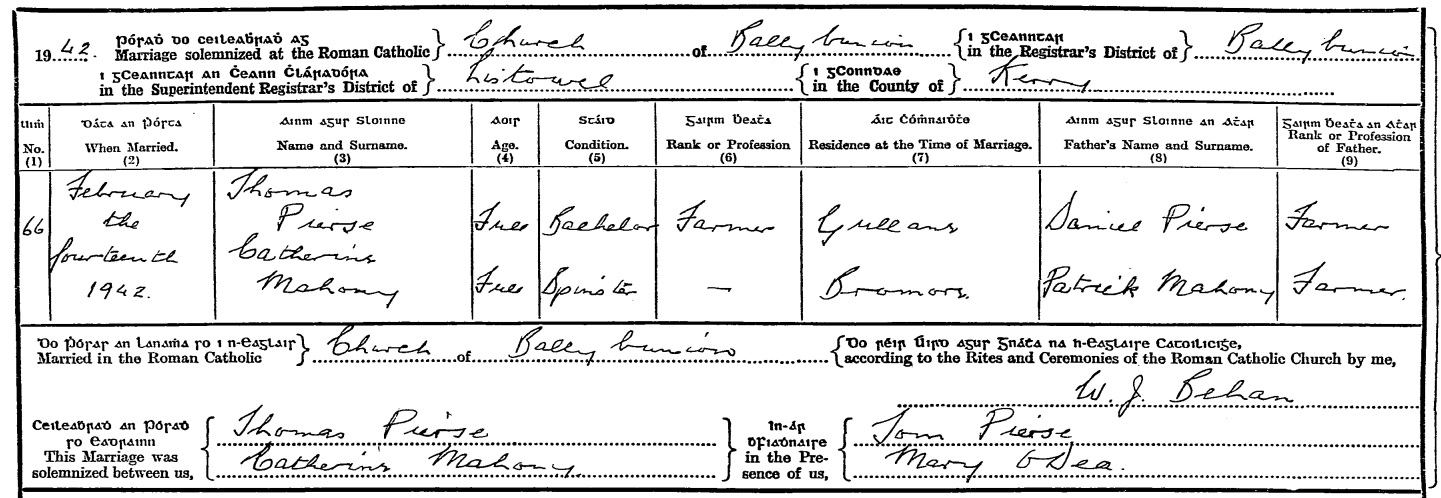 19 42. Pósaḋ do ceileaḃraḋ ag
Marriage solemnized at the Roman Catholic } Church of Ballybunion { i gCeanntar
in the Registrar's District of } Ballybunion
i gCeanntar an Ċeann Ċláraḋóra
in the Superintendent Registrar's District of } Listowel { i gConndae
in the County of } Kerry
Uiṁ Dáta an Ṗósta Ainm agus Sloinne Aois Stáid Gairm Ḃeaṫa Áit Ċóṁnuiḋṫe Ainm agus Sloinne an Aṫar Gairm Ḃeaṫa an Aṫar
No. When Married. Name and Surname. Age. Condition. Rank or Profession Residence at the Time of Marriage. Father's Name and Surname. Rank or Profession of Father.
(1) (2) (3) (4) (5) (6) (7) (8) (9)
February Thomas
66 the Pierse Full Bachelor Farmer Gullans Daniel Pierse Farmer
fourteenth Catherine
1942. Mahony Full Spinster — Bromors. Patrick Mahony Farmer.
Do ṗósas an lanaṁa so i n-Eaglais
Married in the Roman Catholic } Church of Ballybunion { Do réir Uird agus Gnáṫa na h-Eaglaise Catoilicíġe,
according to the Rites and Ceremonies of the Roman Catholic Church by me,
W. J. Behan
Ceileaḃraḋ an Pósaḋ
so Eadrainn
This Marriage was
solemnized between us, { Thomas Pierse
Catherine Mahony. }
In-ár
ḃFiaḋnaire
in the Pre-
sence of us, { Tom Pierse
Mary O'Dea.